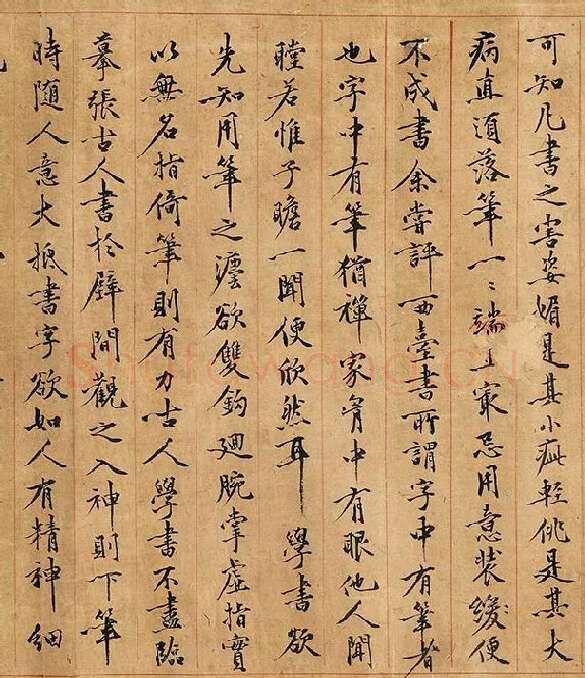 可知凡書之害姿媚是其小疵輕佻是其大
病直須落筆一〻端正最忌用意裝綴便
不成書余嘗評西臺書所謂字中有筆者
也字中有筆猶禪家中有眼他人聞
瞠若惟子瞻一聞便欣然耳學書欲
先知用筆之灋欲雙鈎廻腕掌虛指實
以無名指倚筆則有力古人學書不盡臨
摹張古人書於壁間觀之入神則下筆
時隨人意大抵書字欲如人有精神細